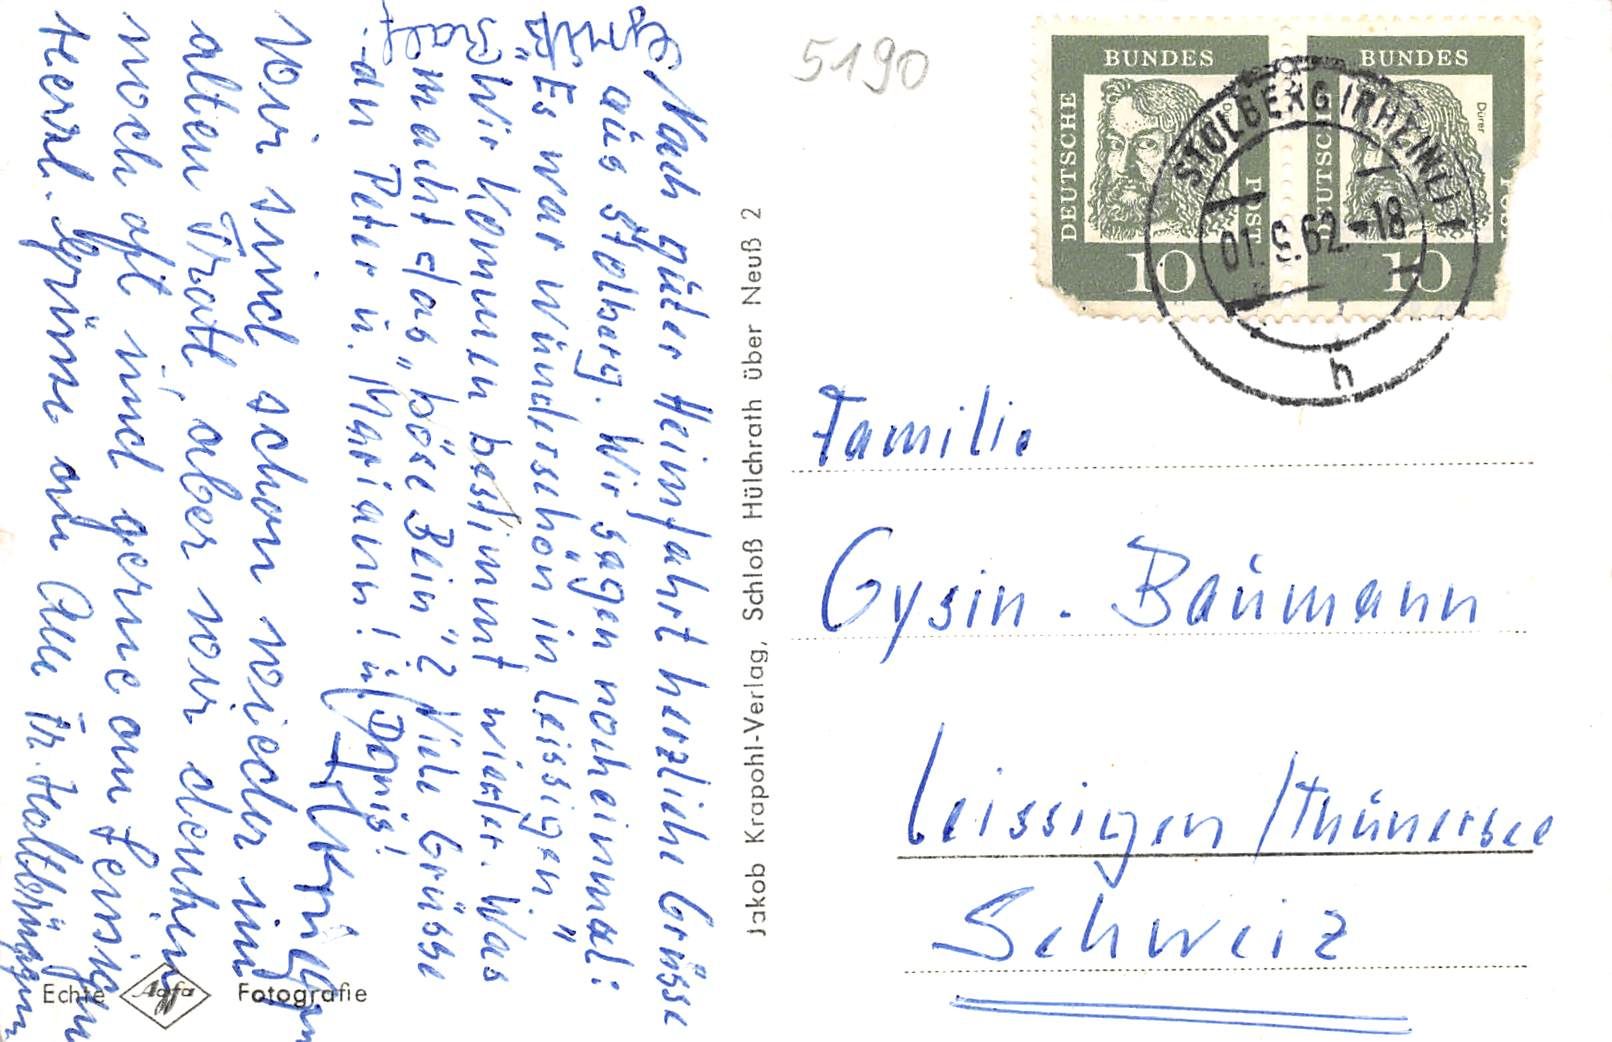 5190
DEUTSCHE BUNDES POST
Dürer
10
DEUTSCHE BUNDES POST
Dürer
10
STOLBERG (RHEINL)
01.9.62.-18
h
Nach guter Heimfahrt herzliche Grüsse
aus Stolberg. Wir sagen nocheinmal:
"Es war wunderschön in Leissigen"
Wir kommen bestimmt wieder. Was
macht das "böse Bein"? Viele Grüsse
an Peter u. Mariann! u. Doris!
Wir sind schon wieder im
alten Tratt, aber wir denken
noch oft und gerne an Leissigen
Herzl. Grüsse an Alle Fr.
Jakob Krapohl-Verlag, Schloß Hülchrath über Neuß 2
Echte Agfa Fotografie
Familie
Gysin-Baumann
Leissigen /Thunersee
Schweiz